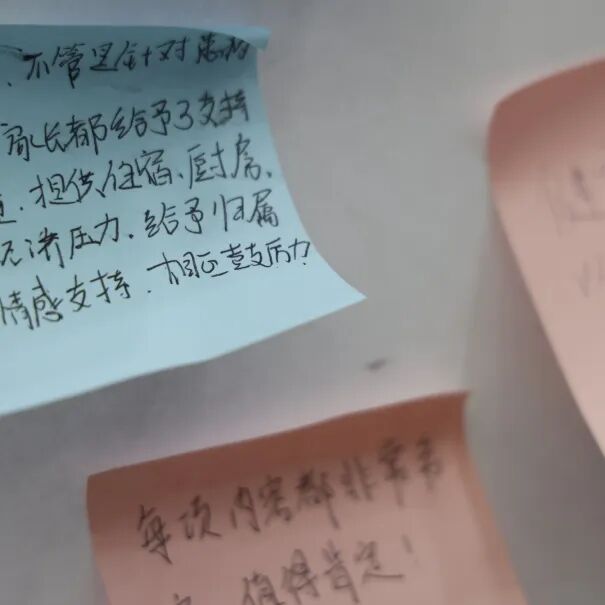 、不管是针对患者
家长都给予了支持
提供住宿、厨房、
消压力、给予归属
情感支持、相互鼓励
每项内容都非常丰
值得肯定！